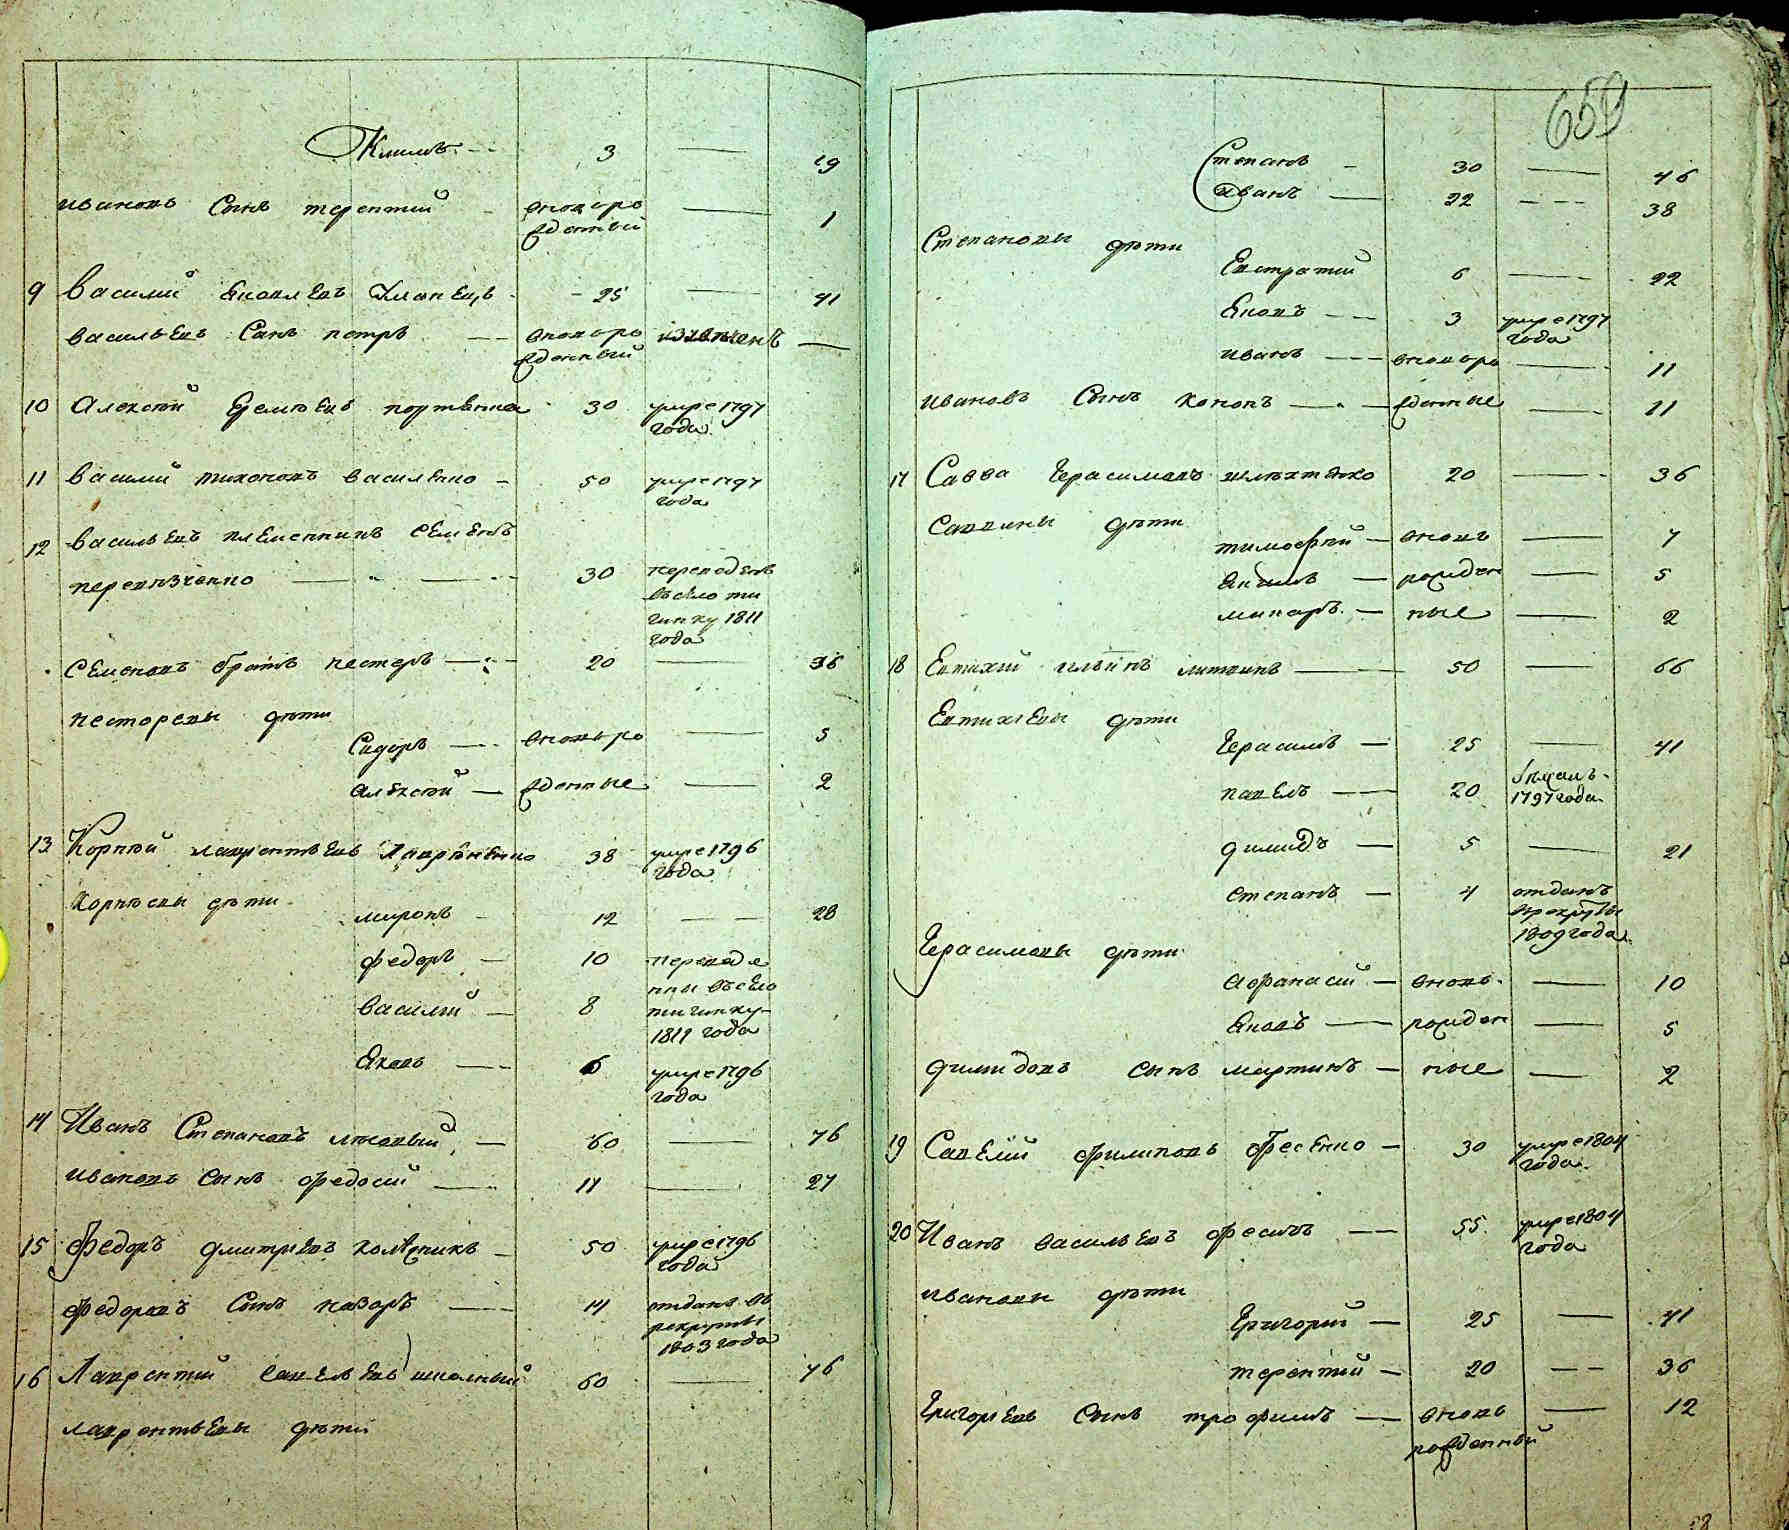 Климъ 3 — 19
Ивановъ Сынъ терентий вновь ро — 1
жденный
9 Василий Яковлевъ 25 — 41
Васильевъ Сынъ петръ — вновь ро —
жденный
10 Алексей 30 умре 1797
года
11 Василий тихоновъ василенко — 50 умре 1797
года
12 Васильевъ племенникъ Семенъ
30 переведенъ
въ село ти
гинку 1811
года
Семеновъ братъ нестеръ — 20 — 36
нестеровы дѣти
Сидоръ — вновь ро — 5
Алексей — жденные — 2
13 Корнѣй лаврентьевъ Лавриненко 38 умре 1796
года
Корнѣевы дѣти
миронъ 12 — 28
федоръ — 10 переведе
нны въ село
василий — 8 тигинку
1811 года
Яковъ — 6 умре 1796
года
14 Иванъ Степановъ — 60 — 76
ивановъ сынъ федосий — 11 — 27
15 Федоръ дмитриевъ колесникъ — 50 умре 1796
года
федоровъ Сынъ назаръ — 14 отданъ въ
рекруты
1803 года
16 Лаврентий савельевъ школный 60 — 76
лаврентьевы дѣти
659
Степанъ — 30 — 46
Иванъ — 22 — 38
Степановы дѣти
Евстратий 6 — 22
Яковъ — 3 умре 1797
года
иванъ — вновь ро — 11
ивановъ Сынъ кононъ — жденные — 11
17 Савва Герасимовъ 20 — 36
Саввины дѣти
тимофѣй — вновь — 7
Якимъ — рожден — 5
макаръ — ные — 2
18 Евтихий ильинъ литвинъ — 50 — 66
Евтихиевы дѣти
Герасимъ — 25 — 41
павелъ — 20 бѣжалъ
1797 года
димидъ — 5 — 21
степанъ — 4 отданъ
в рекруты
1809 года
Герасимовы дѣти
афанасий — вновь — 10
Яковъ — рожден — 5
димидовъ сынъ мартинъ — ные — 2
19 Савелий филиповъ фесенко — 30 умре 1804
года
20 Иванъ васильевъ 55 умре 1804
года
ивановы дѣти
Григорий — 25 — 41
терентий — 20 — 36
Григориевъ Сынъ трофимъ — вновь — 12
рожденный